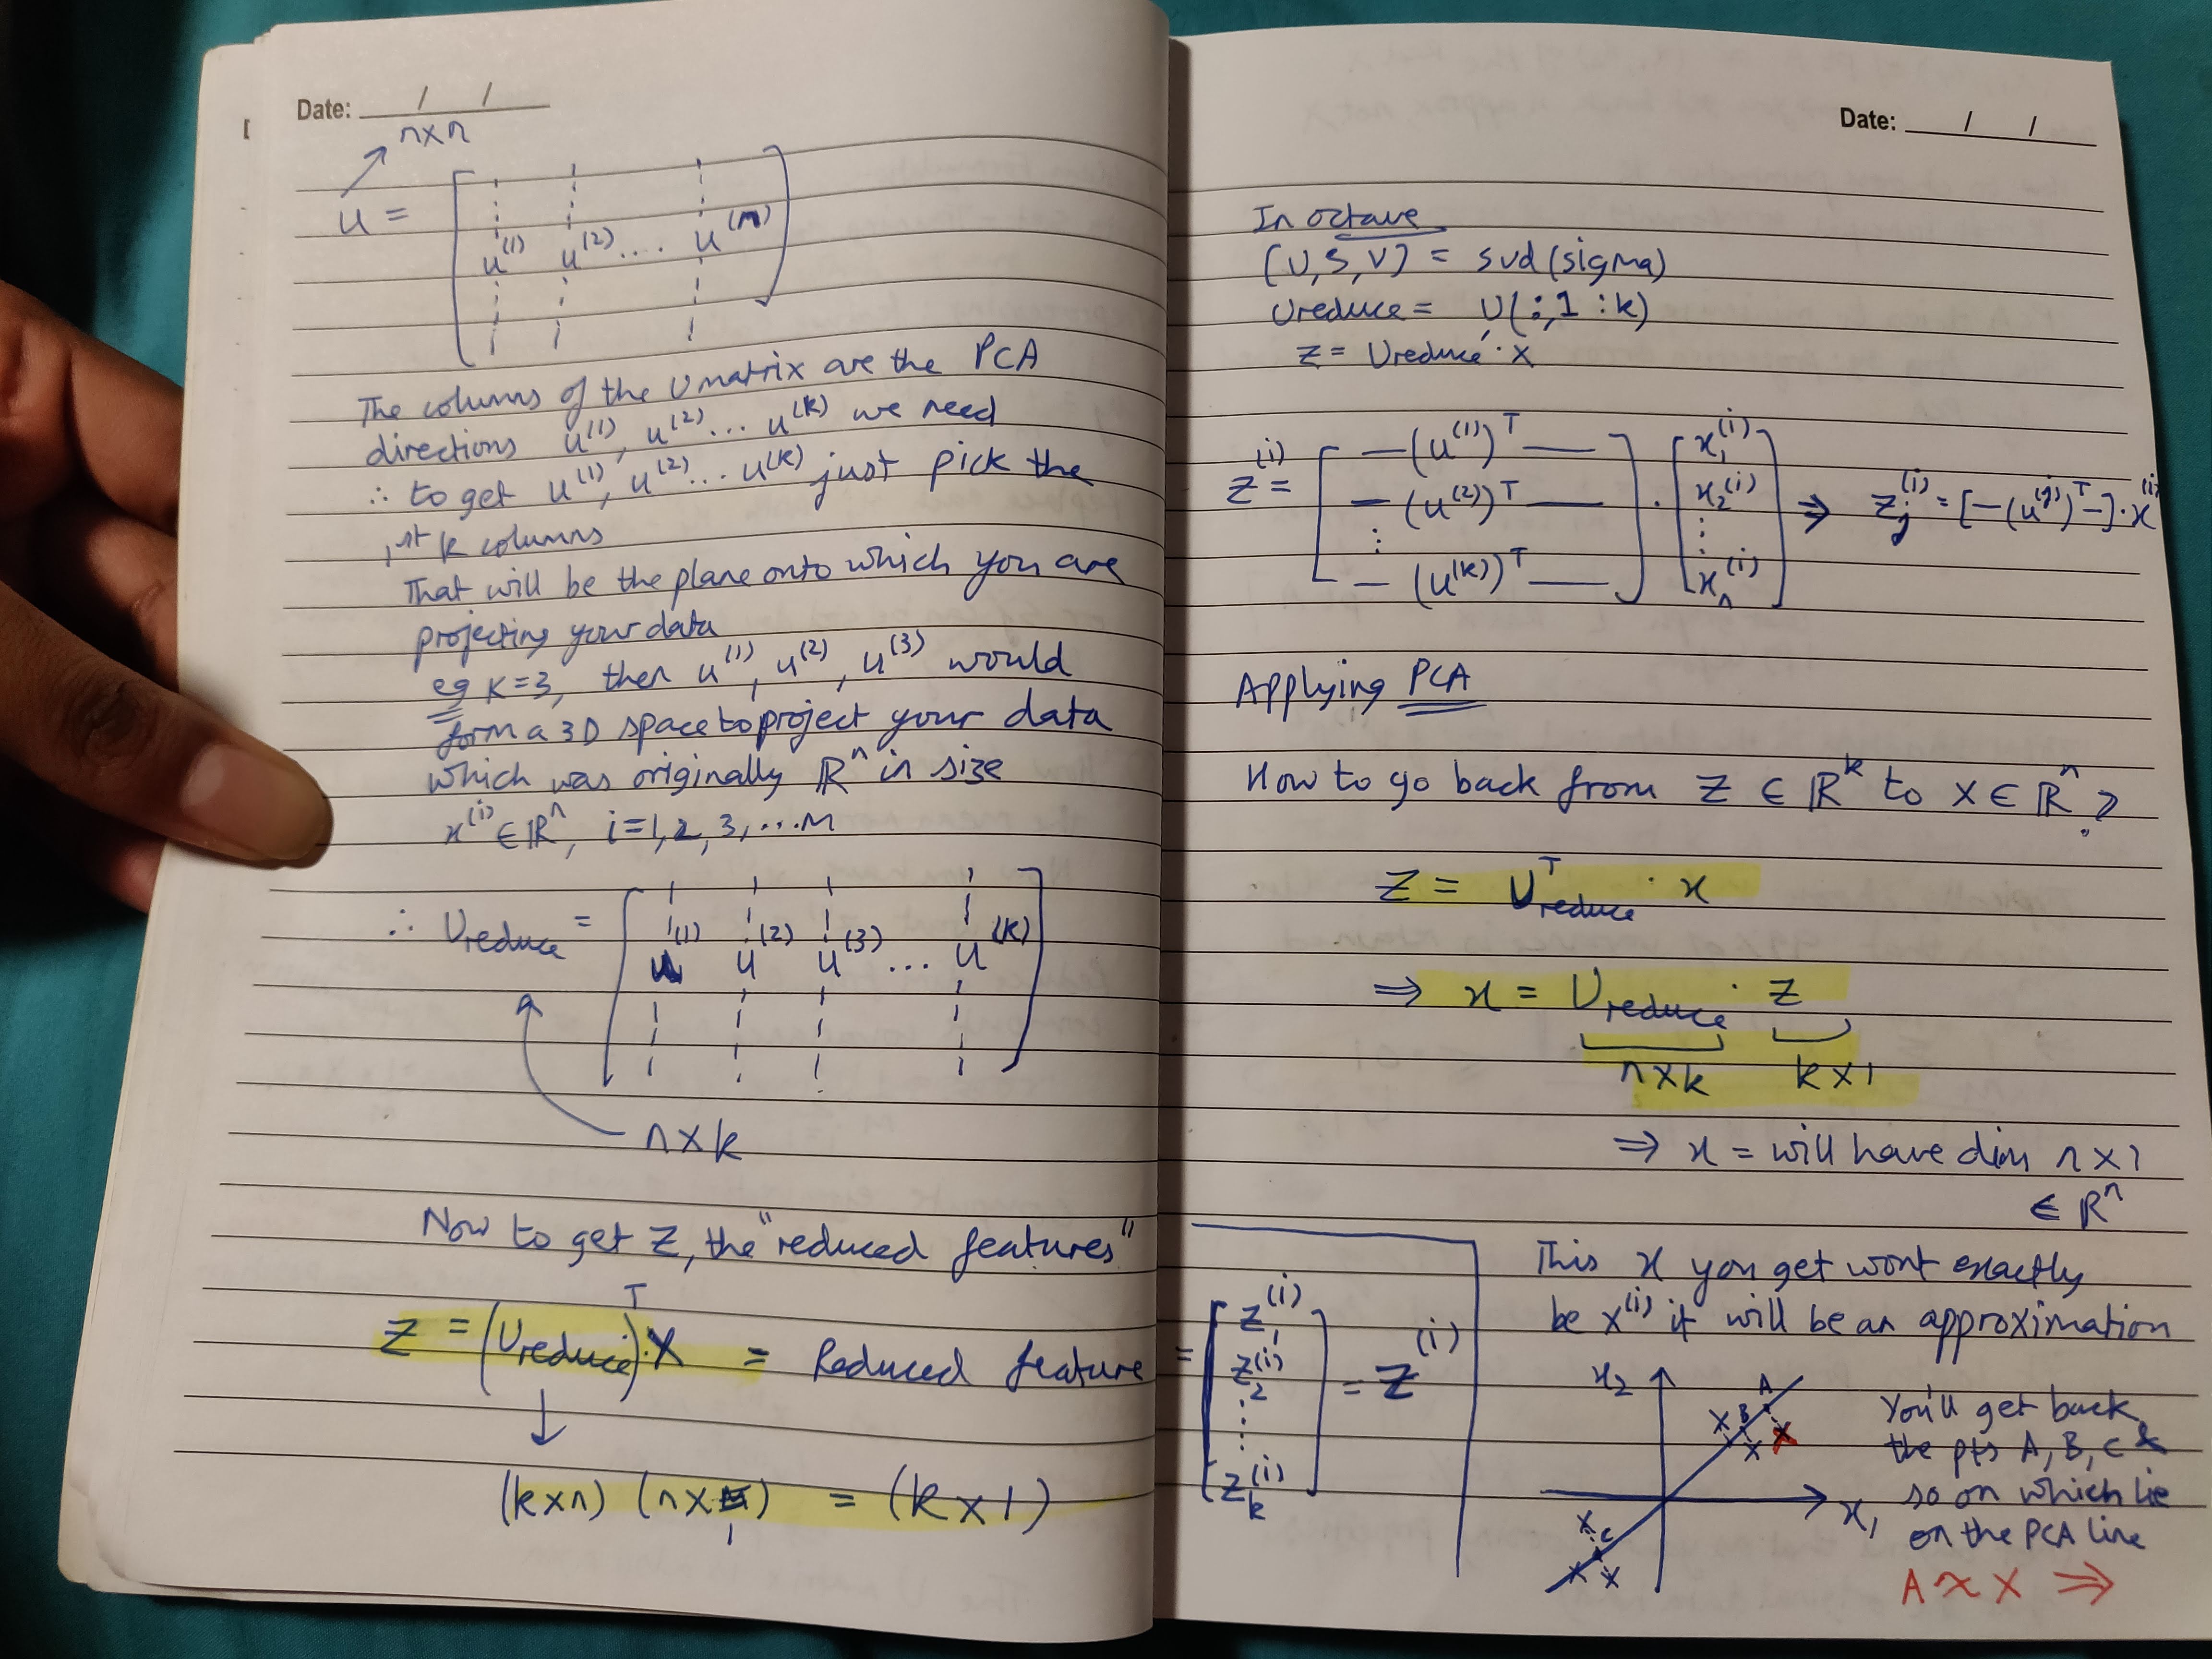 Date: __/__/__
n×n
U = [ u^(1) u^(2) .... u^(n) ]
The columns of the U matrix are the PCA
directions u^(1), u^(2) ... u^(k) we need
∴ to get u^(1), u^(2) ... u^(k) just pick the
1st k columns
That will be the plane onto which you are
projecting your data
eg k=3, then u^(1), u^(2), u^(3) would
form a 3D space to project your data
which was originally ℝ^n in size
x^(i) ∈ ℝ^n, i=1,2,3,...m
∴ Ureduce = [ u^(1) u^(2) u^(3) ... u^(k) ]
n×k
Now to get Z, the "reduced features"
Z = (Ureduce)^T · X = Reduced feature = [ z_1^(i) z_2^(i) ⋮ z_k^(i) ] = Z^(i)
(k×n) (n×1) = (k×1)
Date: __/__/__
In octave
[U,S,V] = svd(sigma)
Ureduce = U(:,1:k)
Z = Ureduce' · X
z^(i) = [ —(u^(1))^T— —(u^(2))^T— ⋮ —(u^(k))^T— ] · [ x_1^(i) x_2^(i) ⋮ x_n^(i) ] ⇒ z_j^(i) = [—(u^(j))^T—] · x^(i)
Applying PCA
How to go back from Z ∈ ℝ^k to X ∈ ℝ^n ?
Z = U^T reduce · x
⇒ x = Ureduce · z
n×k k×1
⇒ x = will have dim n×1
∈ ℝ^n
This x you get wont exactly
be x^(i) it will be an approximation
x2
A
B
C
x1
You'll get back
the pts A, B, C &
so on which lie
on the PCA line
A ≈ X ⇒